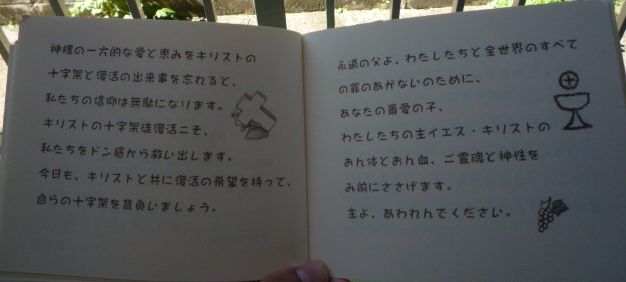 神様の一方的な愛と恵みをキリストの
十字架と復活の出来事を忘れると、
私たちの信仰は無駄になります。
キリストの十字架徒復活こそ、
私たちをドン底から救い出します。
今日も、キリストと共に復活の希望を持って、
自らの十字架を背負いましょう。
永遠の父よ、わたしたちと全世界のすべて
の罪のあがないのために、
あなたの最愛の子、
わたしたちの主イエス・キリストの
おん体とおん血、ご霊魂と神性を
み前にささげます。
主よ、あわれんでください。